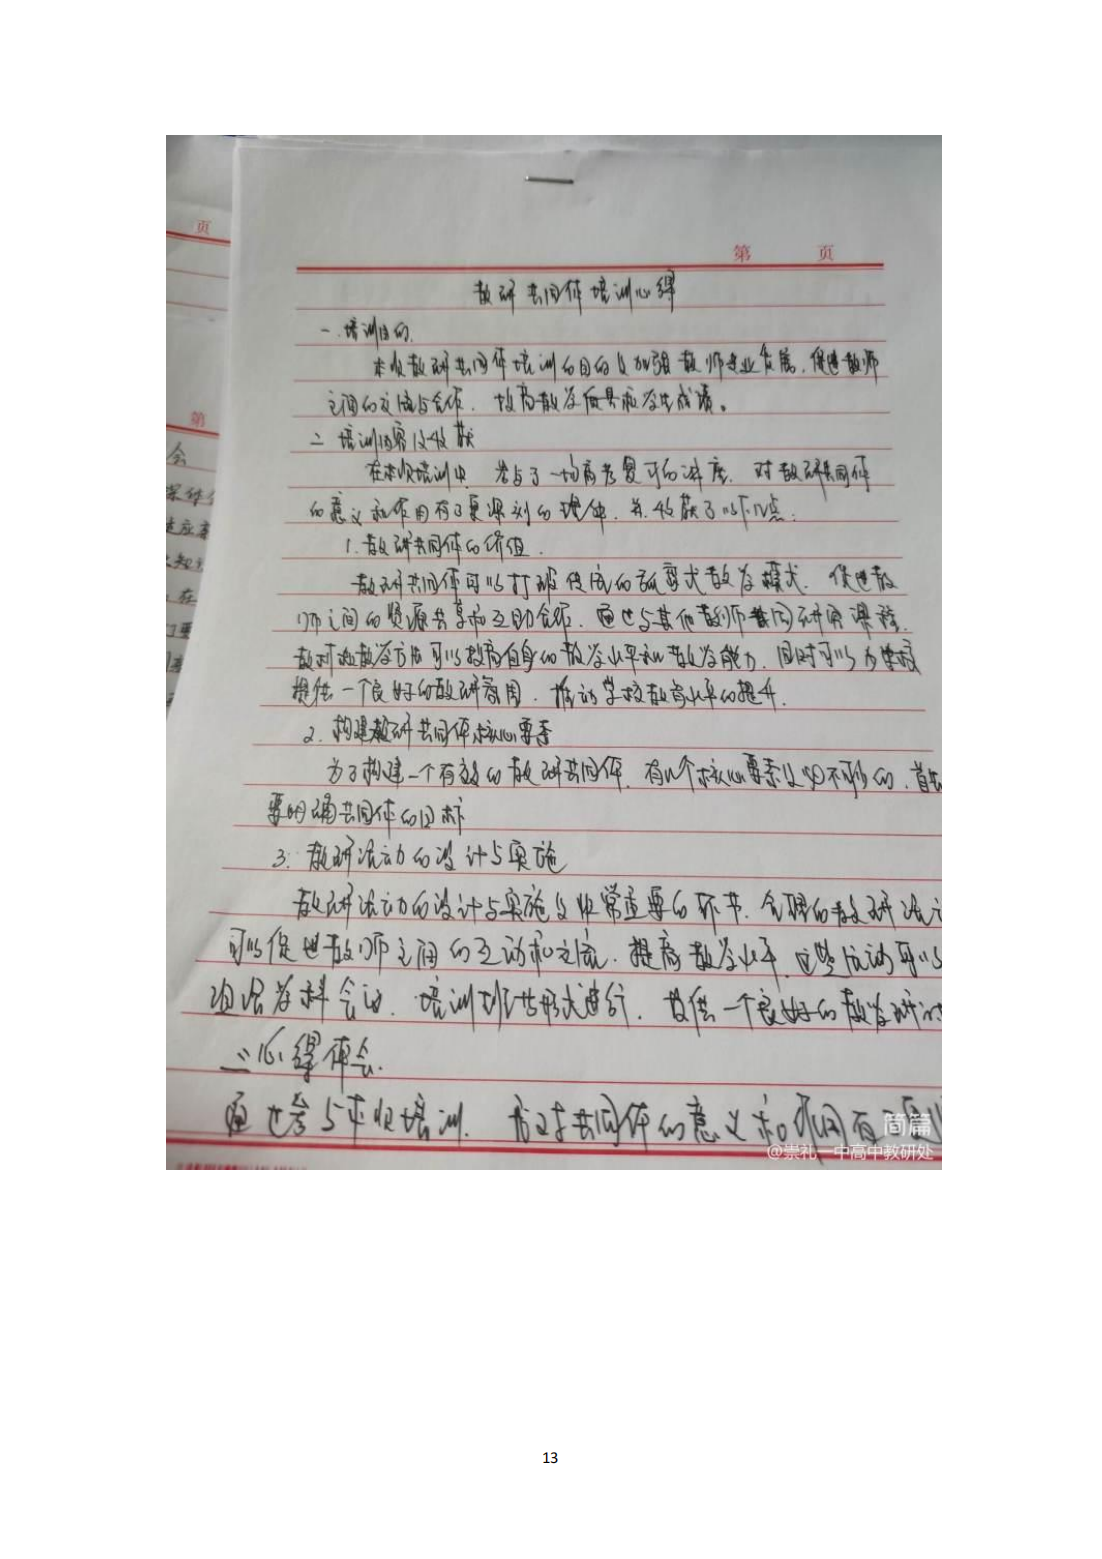 页
第 页
教研共同体培训心得
一.培训目的.
本次教研共同体培训的目的是加强教师专业发展.促进教师
之间的交流与合作.提高教学质量和学生成绩。
二 培训内容及收获
在本次培训中 参与了一场高考复习的讲座.对教研共同体
的意义和作用有了更深刻的理解.并收获了以下几点:
1.教研共同体的价值.
教研共同体可以打破传统的孤立式教学模式.促进教
师之间的资源共享和互助合作.通过与其他教师共同研究课程.
教材和教学方法可以提高自身的教学水平和教学能力.同时可以为学校
提供一个良好的教研氛围.推动学校教育水平的提升.
2.构建教研共同体核心要素
为了构建一个有效的教研共同体.有几个核心要素是必不可少的.首先
要明确共同体的目标
3.教研活动的设计与实施
教研活动的设计与实施是非常重要的环节.合理的教研活
可以促进教师之间的互动和交流.提高教学水平.这些活动可以
组学科会议.培训班等形式进行.提供一个良好的教学研
三心得体会.
通过参与本次培训.我对共同体的意义和作用有
第
会
在
简篇
@崇礼一中高中教研处
13